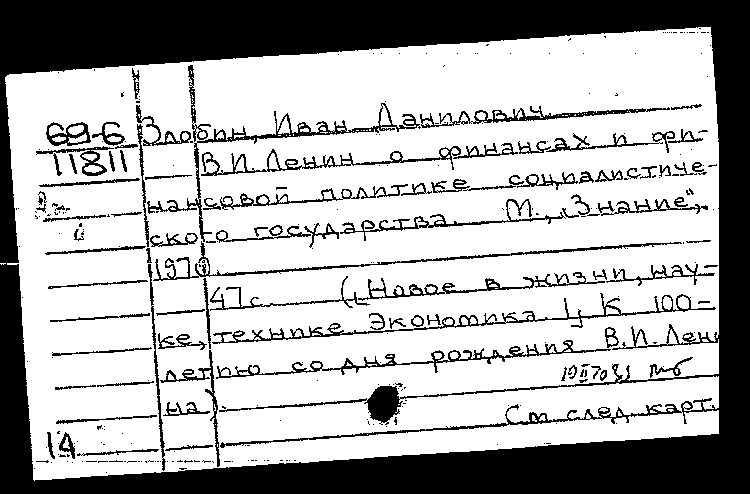 69-6 Злобин, Иван Данилович.
11811 В.И. Ленин о финансах и фи-
нансовой политике социалистиче-
ского государства. М., „Знание",
1970.
47 с. (Новое в жизни, нау-
ке, технике. Экономика. 4. К 100-
летию со дня рождения В.И. Лени
на).
См след. карт.
14